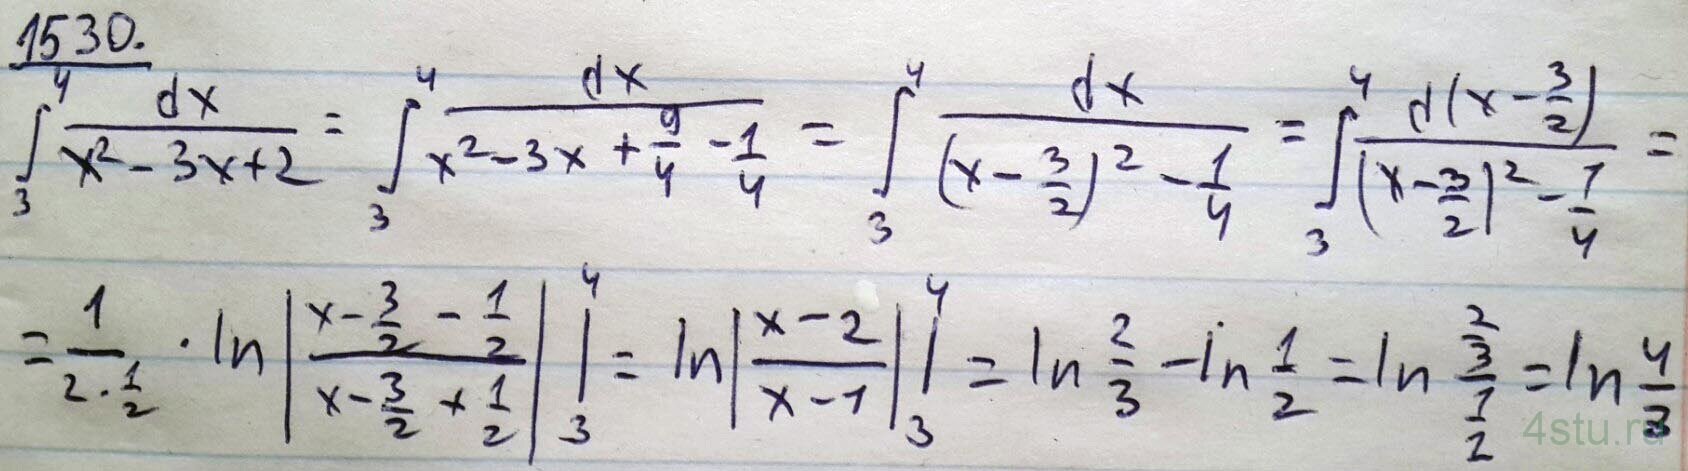 1530.
∫₃⁴ dx/(x² - 3x + 2) = ∫₃⁴ dx/(x² - 3x + 9/4 - 1/4) = ∫₃⁴ dx/((x - 3/2)² - 1/4) = ∫₃⁴ d(x - 3/2)/((x - 3/2)² - 1/4) =
= 1/(2 · 1/2) · ln |(x - 3/2 - 1/2)/(x - 3/2 + 1/2)| |₃⁴ = ln |(x - 2)/(x - 1)| |₃⁴ = ln 2/3 - ln 1/2 = ln (2/3)/(1/2) = ln 4/3
4stu.ru